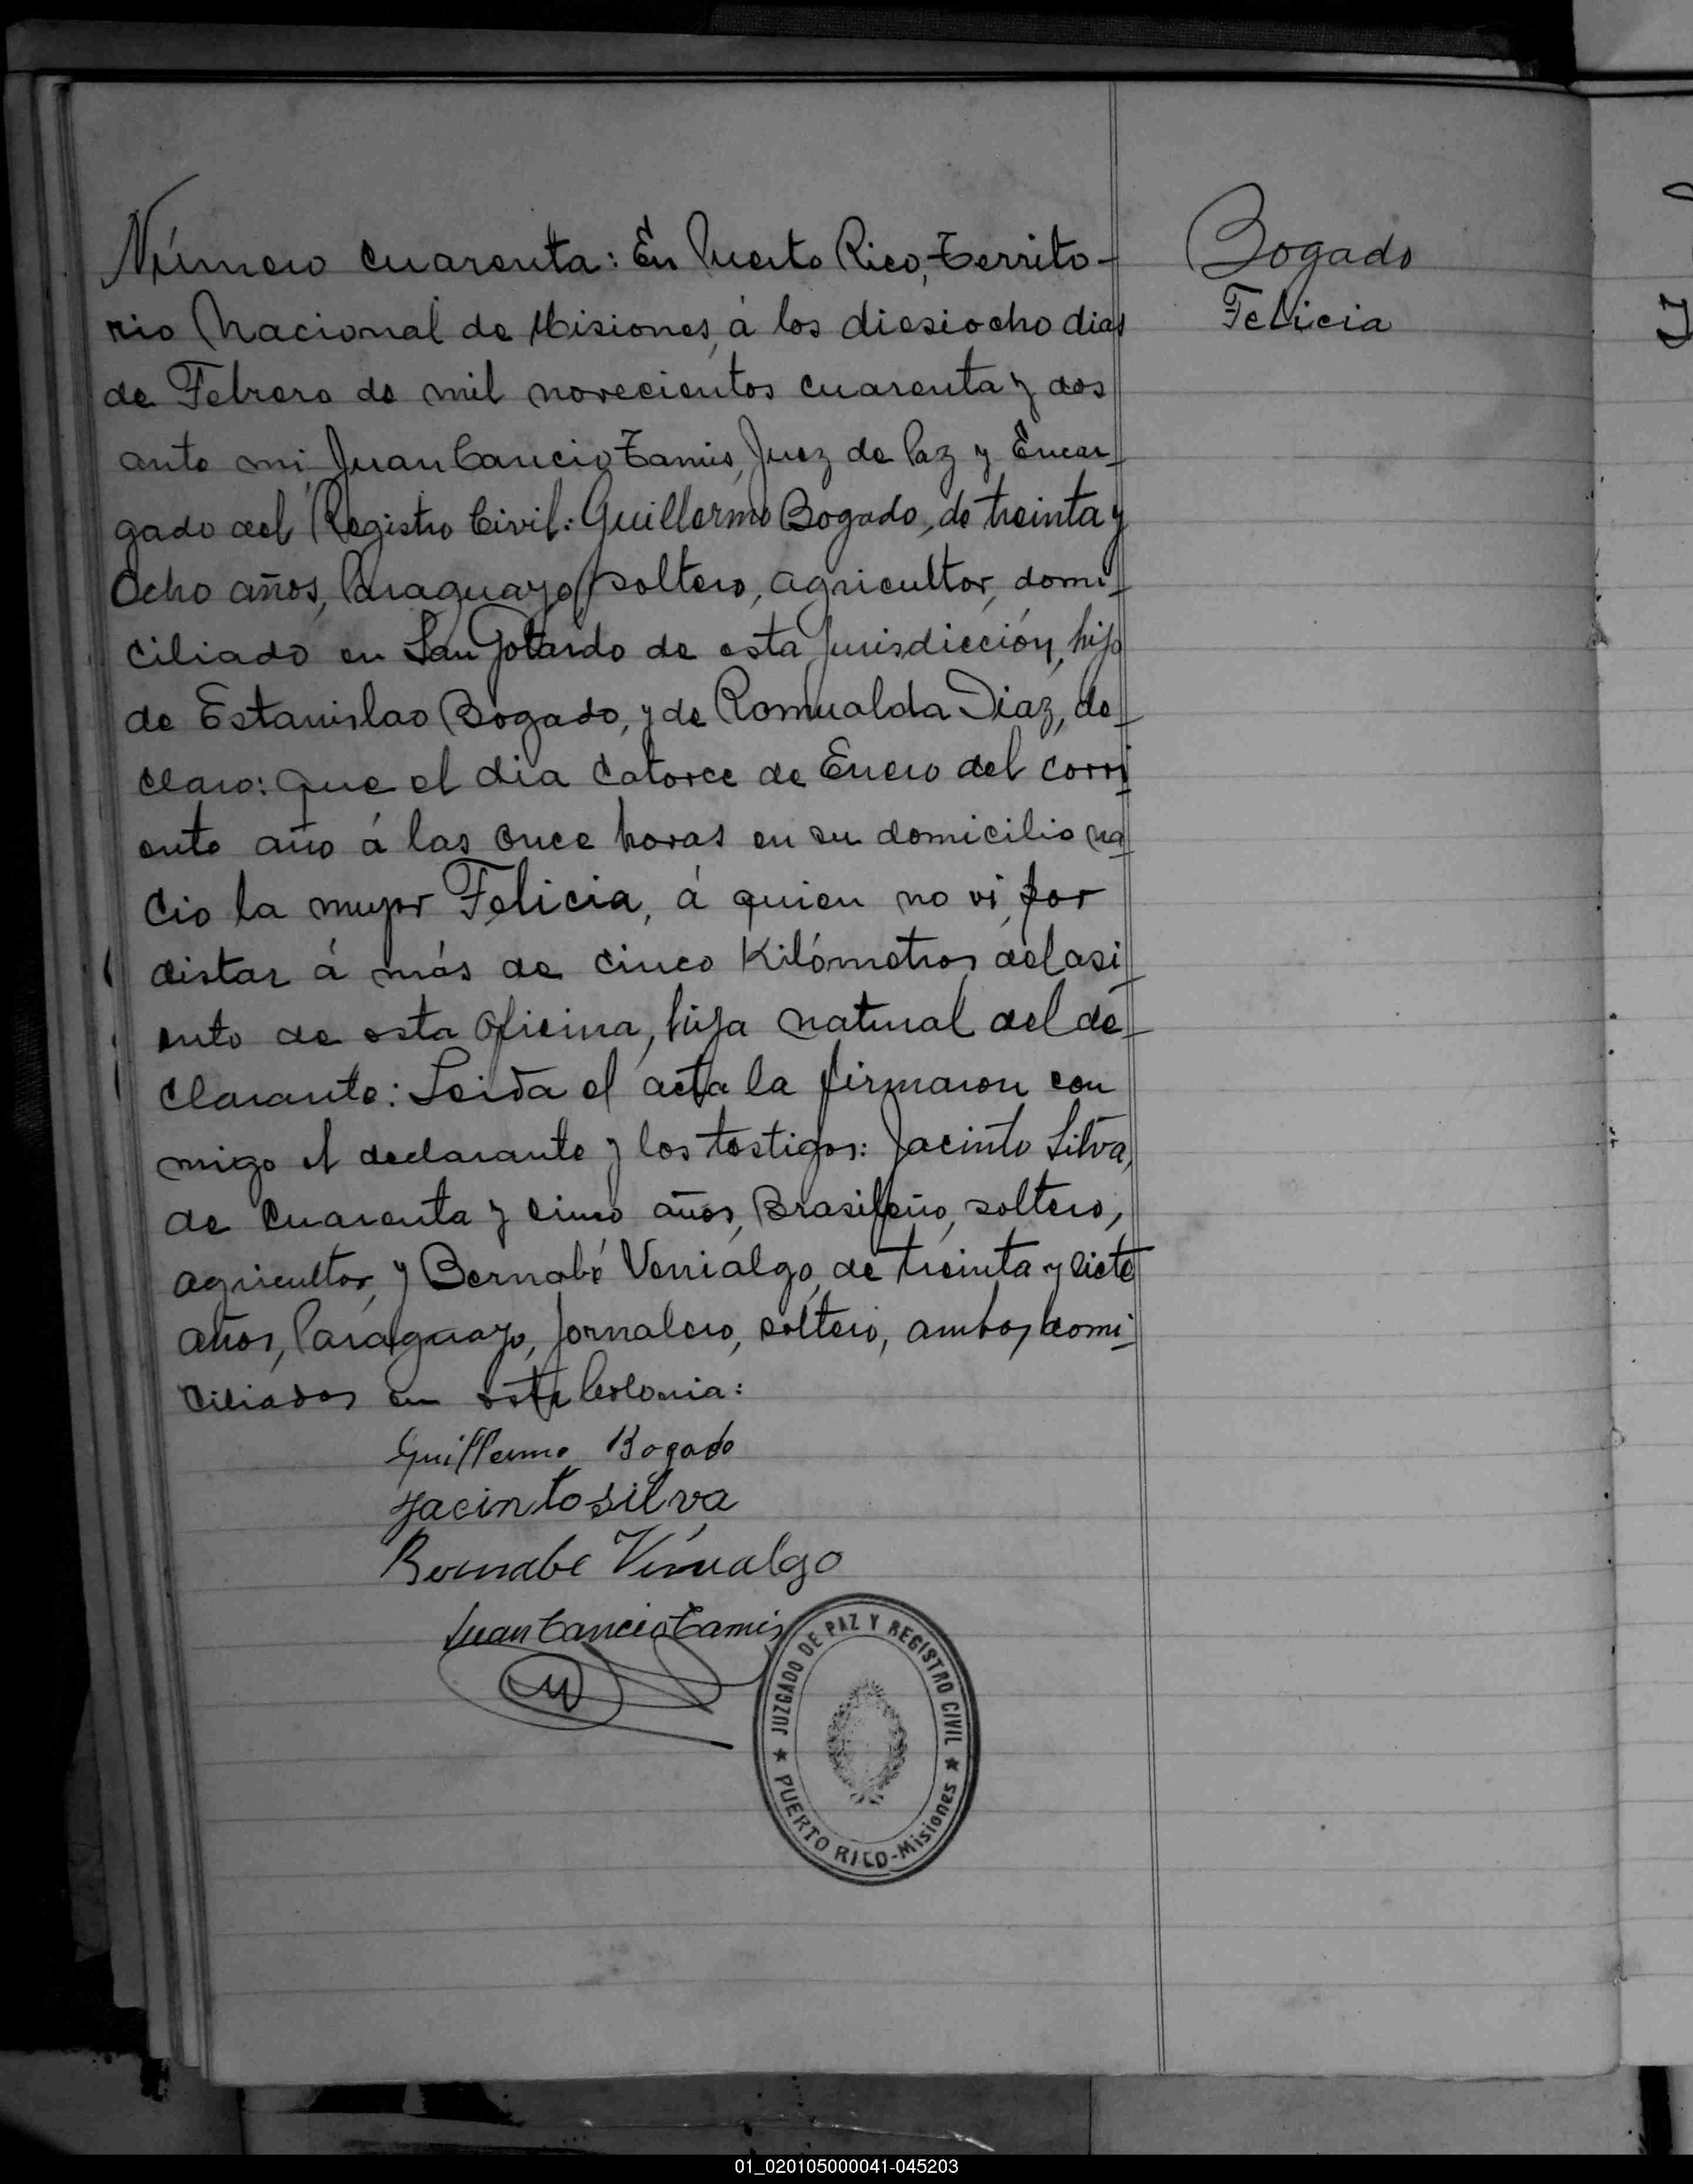 Número cuarenta: En Puerto Rico, Territo-
rio Nacional de Misiones, á los diesiocho dias
de Febrero de mil novecientos cuarenta y dos
ante mi, Juan Cancio Tamis, Juez de Paz y Encar-
gado del Registro Civil: Guillermo Bogado, de treinta y
Ocho años, Paraguayo, soltero, agricultor, domi-
ciliado en San Gotardo de esta Jurisdicción, hijo
de Estanislao Bogado, y de Romualda Diaz, de-
claro: que el dia Catorce de Enero del corri-
ente año á las Once horas en su domicilio na-
cio la mujer Felicia, á quien no vi, por
distar á más de cinco Kilómetros del asi-
ento de esta Oficina, hija natural del de-
clarante: Leida el acta la firmaron con
migo el declarante y los testigos: Jacinto Silva,
de Cuarenta y cinco años, Brasileño, soltero,
agricultor, y Bernabé Venialgo, de treinta y siete
años, Paraguayo, Jornalero, soltero, ambos domi-
ciliados en esta Colonia:
Guillermo Bogado
Jacinto silva
Bernabe Venialgo
Juan Cancio Tamis
JUZGADO DE PAZ Y REGISTRO CIVIL
★ PUERTO RICO-Misiones ★
Bogado
Felicia
01_020105000041-045203